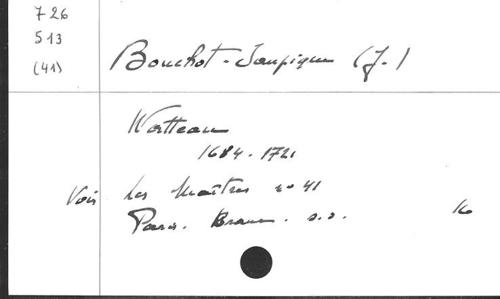 726
513
(41)
Bouchot-Saupique (J.)
Watteau
1684-1721
Voir Les Maîtres no 41
Paris. Braun. s.d.
16